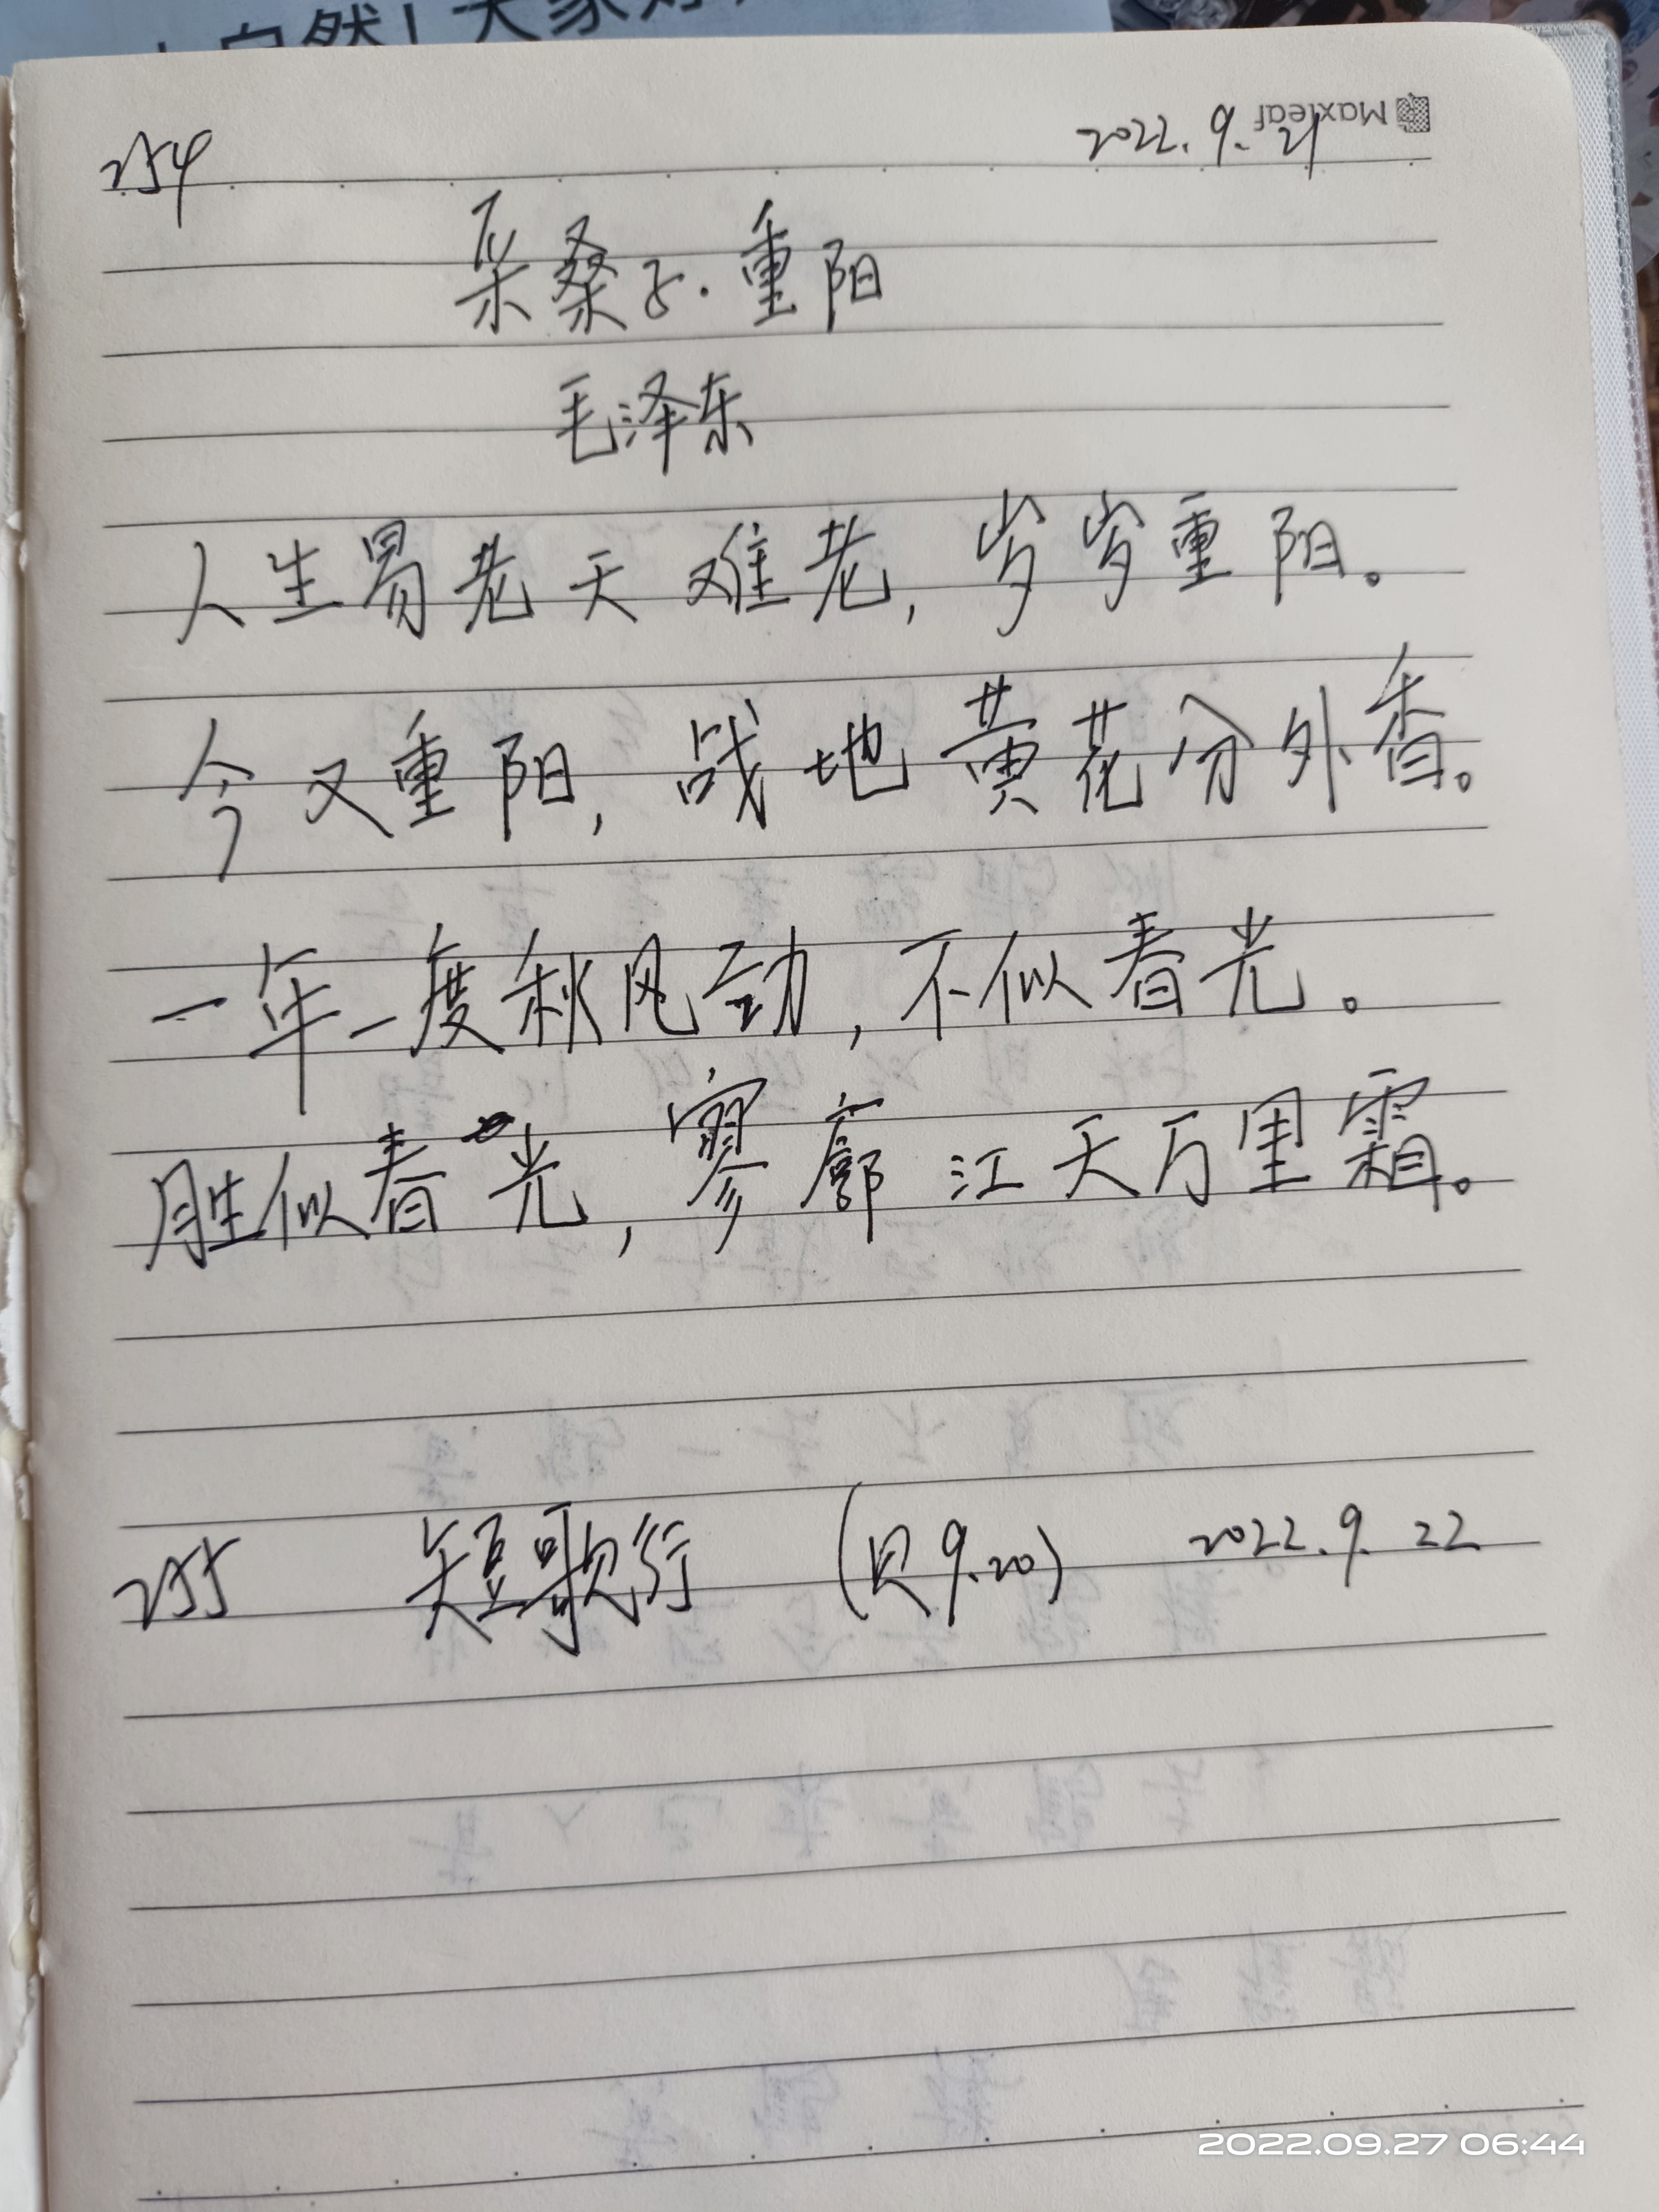 自然！大家好
Maxleaf
254 2022.9.21
采桑子·重阳
毛泽东
人生易老天难老，岁岁重阳。
今又重阳，战地黄花分外香。
一年一度秋风劲，不似春光。
胜似春光，寥廓江天万里霜。
255 短歌行 (见9.20) 2022.9.22
2022.09.27 06:44